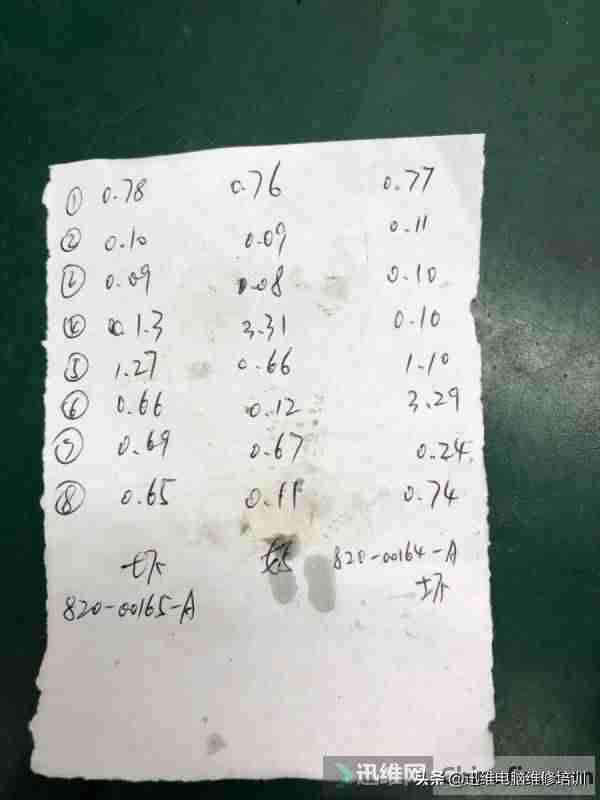 ① 0.78 0.76 0.77
② 0.10 0.09 0.11
③ 0.09 0.08 0.10
④ 0.13 3.31 0.10
⑤ 1.27 0.66 1.10
⑥ 0.66 0.12 3.29
⑦ 0.69 0.67 0.24
⑧ 0.65 0.11 0.74
坏 820-00164-A
820-00165-A 坏
迅维网
头条 @迅维电脑维修培训